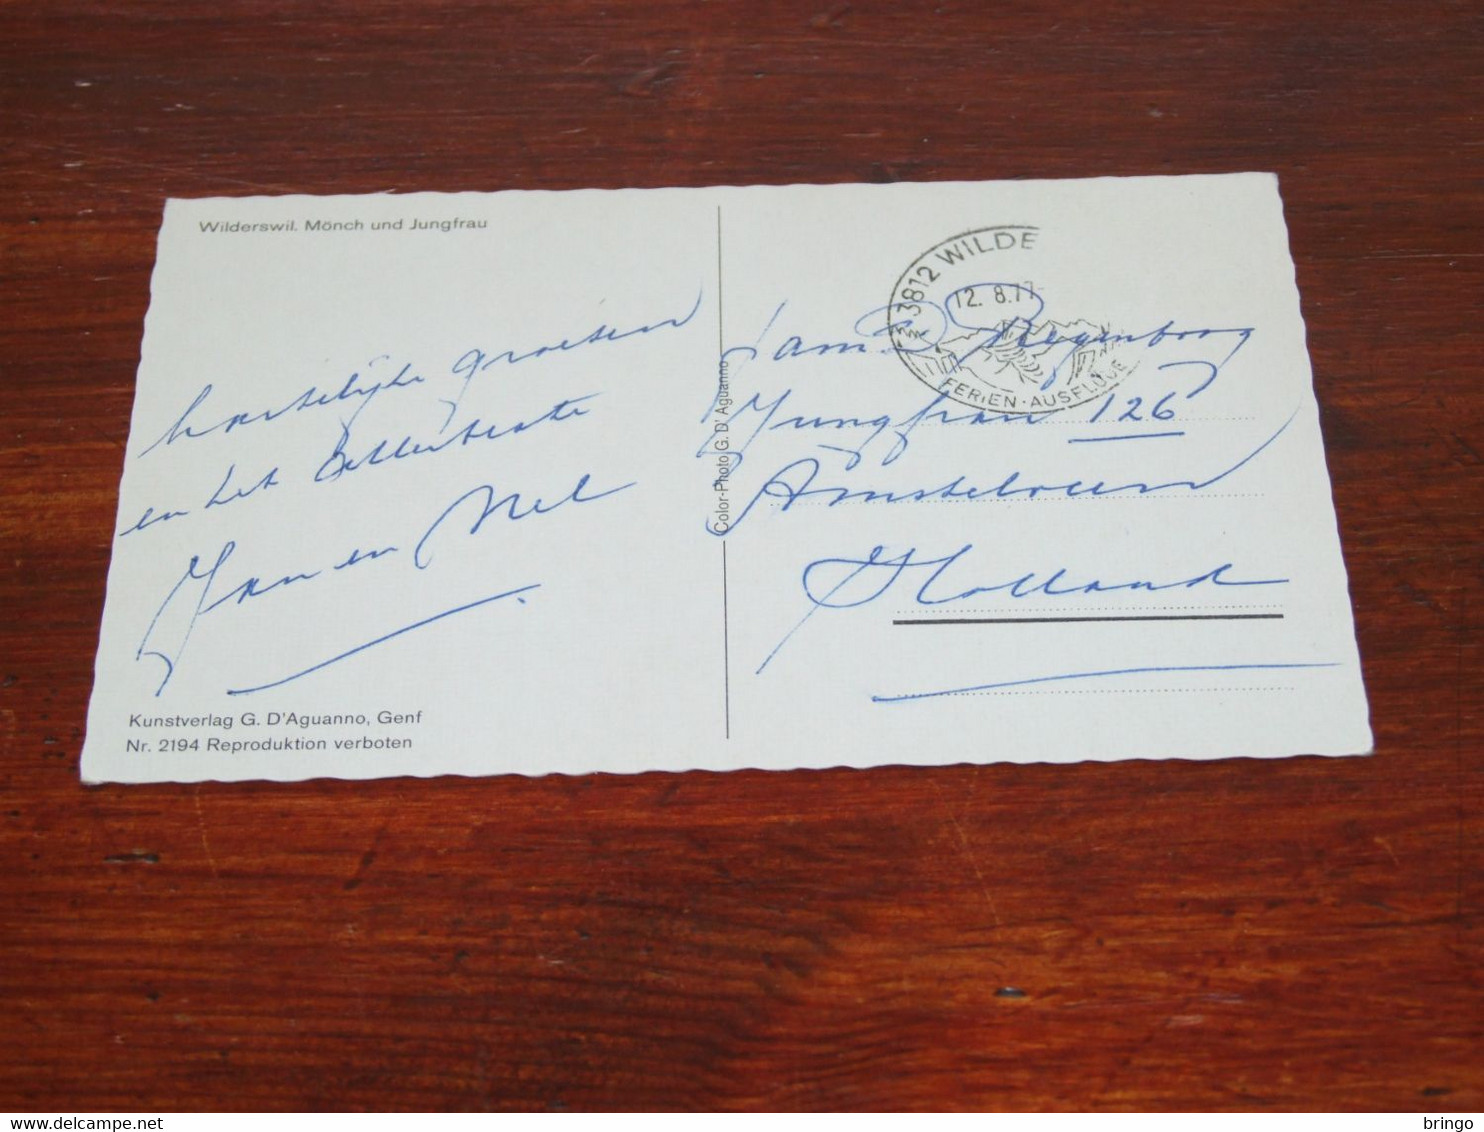 Wilderswil. Mönch und Jungfrau
hartelijke groeten
en het allerbeste
Jan en Nel
Kunstverlag G. D'Aguanno, Genf
Nr. 2194 Reproduktion verboten
Color-Photo G. D'Aguanno
3812 WILDE
12. 8. 77-
FERIEN·AUSFLÜGE
Fam. Regenboog
Jungfrau 126
Amstelveen
Holland
delcampe.net
bringo